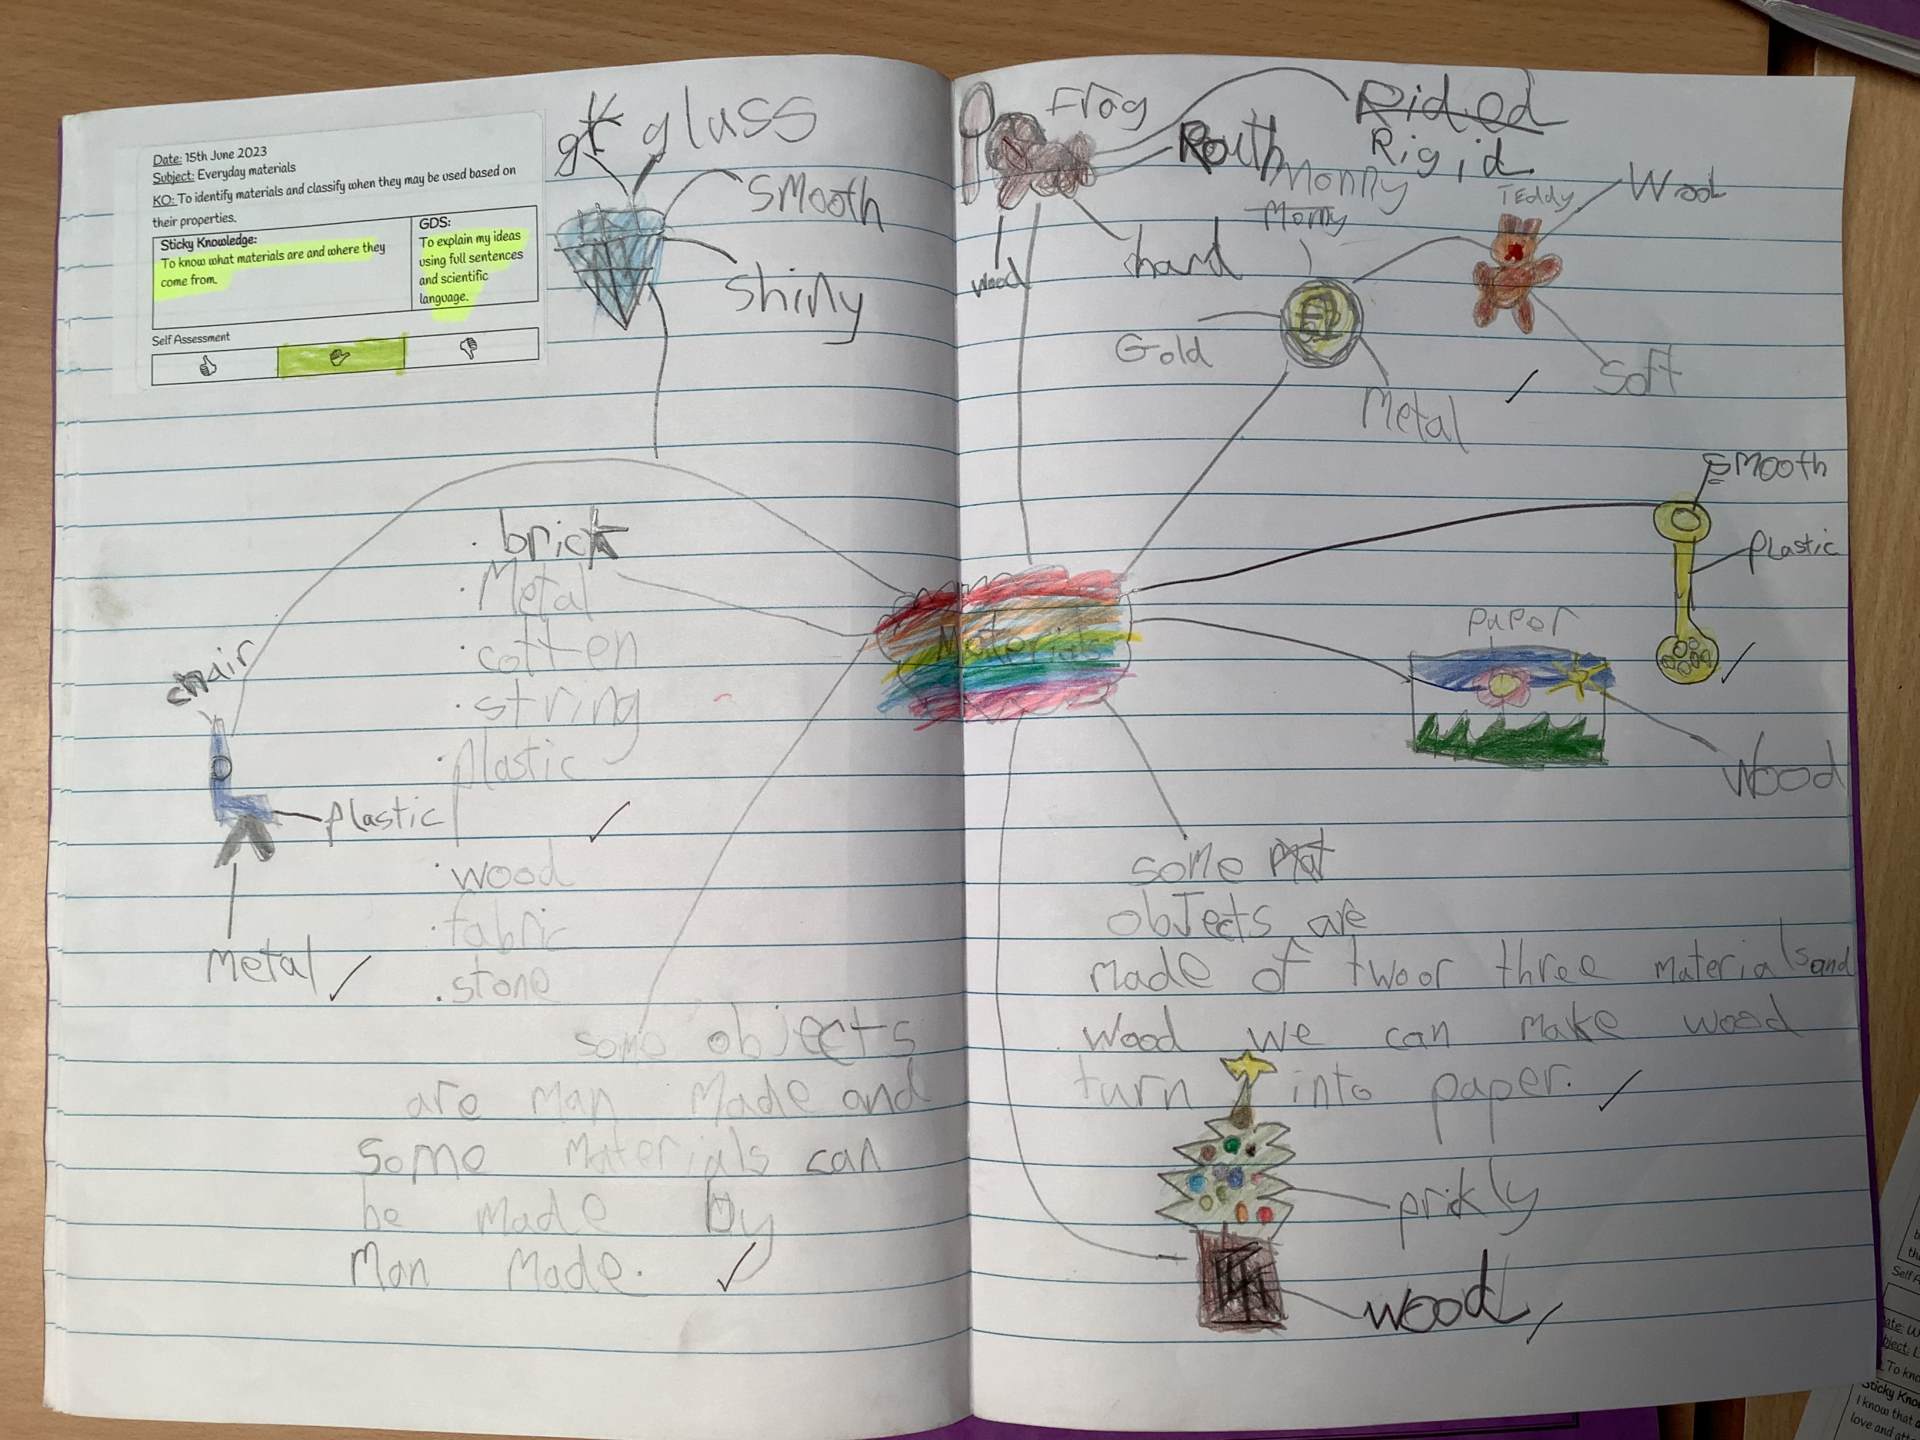 Date: 15th June 2023
Subject: Everyday materials
KO: To identify materials and classify when they may be used based on
their properties.
Sticky Knowledge:
To know what materials are and where they
come from.
GDS:
To explain my ideas
using full sentences
and scientific
language.
Self Assessment
gluss
smooth
Shiny
chair
Plastic
Metal
. brick
. Metal
. cotten
. string
. plastic
. wood
. fabric
. stone
some objects
are man made and
some materials can
be made by
Man Made.
Materials
Frog
Rided
Rigid
Routh
hard
wood
Monny
Momy
Gold
Metal
TEddy
Wool
Soft
Smooth
Plastic
Paper
Wood
some mat
objects are
made of two or three materials and
wood we can make wood
turn into paper.
prikly
wood